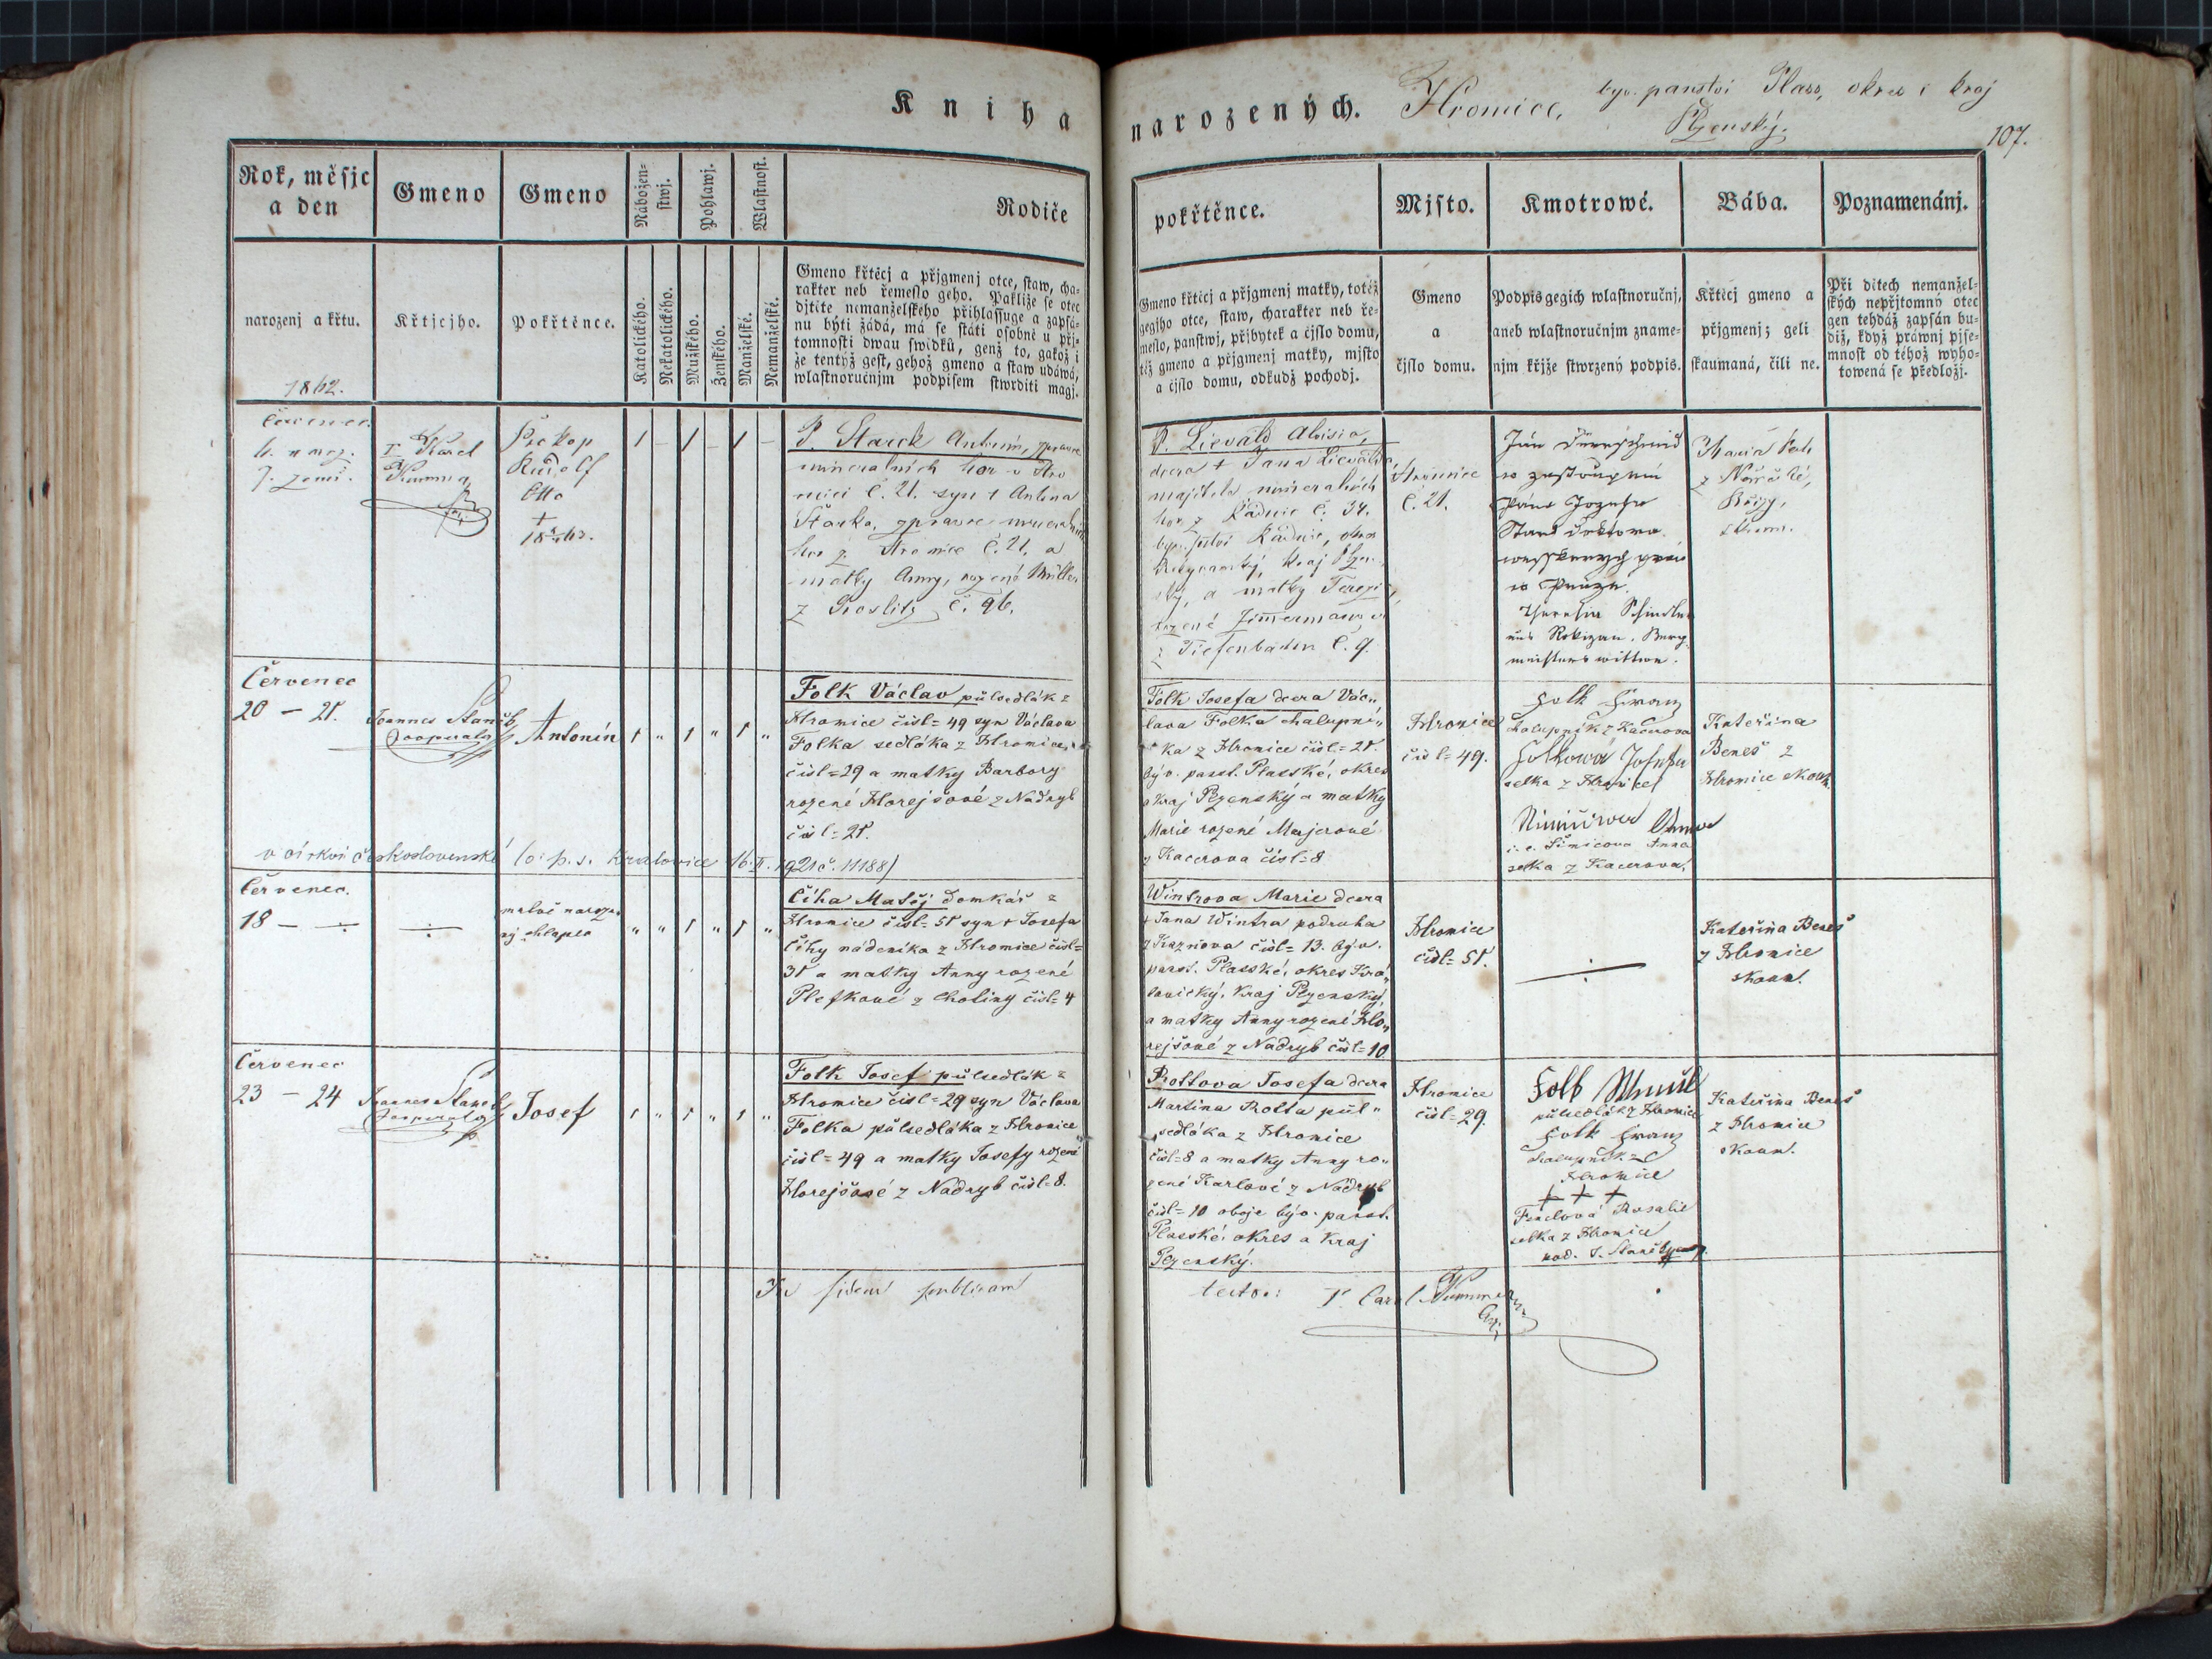 Kniha
narozených. Hromice, býv. panství Plass, okres i kraj
Plzenský.
107.
Rok, měsjc
a den
Gmeno
Gmeno
Nábožen-
stwj.
Pohlawj.
Wlastnost.
Rodiče
narozenj a křtu.
1862.
Křtjcjho.
Pokřtěnce.
Katolického.
Nekatolického.
Mužského.
Ženského.
Manželské.
Nemanželské.
Gmeno křtěcj a přjgmenj otce, staw, cha-
rakter neb řemeslo geho. Pakliže se otec
djtěte nemanželského přihlassuge a zapsá-
nu býti žádá, má se státi osobně u přj-
tomnosti dwau swědků, genž to, gakož i
že tentýž gest, gehož gmeno a staw udáwá,
wlastnoručnjm podpisem stwrditi magj.
pokřtěnce.
Mjsto.
Kmotrowé.
Bába.
Poznamenánj.
Gmeno křtěcj a přjgmenj matky, totéž
gegjho otce, staw, charakter neb ře-
meslo, panstwj, přjbytek a čjslo domu,
též gmeno a přjgmenj matky, mjsto
a čjslo domu, odkudž pocházj.
Gmeno
a
čjslo domu.
Podpis gegich wlastnoručnj,
aneb wlastnoručnjm zname-
njm křjže stwrzený podpis.
Křtěcj gmeno a
přjgmenj; geli
skaumaná, čili ne.
Při djtech nemanžel-
ských nepřjtomný otec
gen tehdáž zapsán bu-
diž, když práwnj pjse-
mnost od téhož wyho-
towená se předložj.
Červenec.
6. naroz.
7.
P. Karel
Prokop
Rudolf
Otto
+
1 – 1 – 1 –
P. Starck Antonín, správce
minerálních hor v Hro
mici č. 21. syn + Antona
Štarka, zprávce minerálních
hor z Hromice č. 21. a
matky Anny, rozené Müller
z Graslitz č. 96.
P. Lievald Aloisia,
dcera + Jana Lievalda,
majitele minerálních
hor z Rádnic č. 34.
býv. pstvi Rádnic, okres
Rokycanský, kraj Plzen-
ský, a matky Terezie,
rozené Zimmermann
z Tiefenbachu č. 9.
Hromice
č. 21.
Jan
w zastoupení
Pána Jozefa
Stark doktora
w Praze.
Theresia Schindler
aus Rokizan, Berg
meisters wittwe.
Maria
skoum.
Červenec
20 – 21.
Joannes Staněk,
Cooperator
Antonín
1 " 1 " 1 "
Folk Václav půlsedlák z
Hromice čísl= 49 syn Václava
Folka sedláka z Hromice
čísl= 29 a matky Barbory
rozené Horejšové z Nadryb
čísl= 21.
Folk Josefa dcera Vác„
lava Folka chalupní„
ka z Hromice čísl= 21.
býv. panst. Plasské, okres
a kraj Plzenský a matky
Marie rozené Majerové
z Kacerova čísl= 8
Hromice
čísl= 49.
Folk Franz
chalupník z Kacerova
Folkowá Josefa
selka z Hromice
i. e. Šimicova Anna
selka z Kacerova.
Kateřina
Beneš z
Hromice skoum.
v církvi československé (o. p. s. Kralovice 16. II. 1921 č. 11188)
Červenec.
18 – ÷
÷
mrtvě naroze„
ný chlapec
" " 1 " 1 "
Číha Matěj domkář z
Hromice čísl= 51 syn + Josefa
Číhy nádeníka z Hromice čísl=
31 a matky Anny rozené
Plefkové z Chotiny čísl= 4
Wintrova Marie dcera
+ Jana Wintra podruha
z Kaznova čísl= 13. býv.
panst. Plasské, okres Krá„
lovický, kraj Plzenský,
a matky Anny rozené Ho„
rejšové z Nadryb čísl= 10
Hromice
čísl= 51.
÷
Kateřina Beneš
z Hromice
skoum.
Červenec
23 – 24
Joannes Staněk,
Cooperator
Josef
1 " 1 " 1 "
Folk Josef půlsedlák z
Hromice čísl= 29 syn Václava
Folka půlsedláka z Hromice
čísl= 49 a matky Josefy rozené
Horejšové z Nadryb čísl= 8.
Rottova Josefa dcera
Martina Rotta půl„
sedláka z Hromice
čísl= 8 a matky Anny ro„
zené Karlové z Nadryb
čísl= 10 oboje býv. panst.
Plasské, okres a kraj
Plzenský.
Hromice
čísl= 29.
Folk
půlsedlák z Hromice
Folk Franz
chalupník z
Hromice
+ + +
Rosalie
selka z Hromice
pod. J. Staněk
Kateřina Beneš
z Hromice
skoum.
In fidem publicam
testor: P. Carol